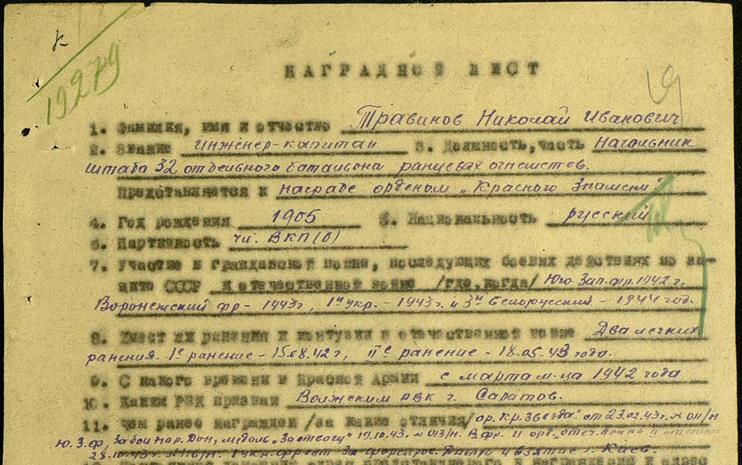 к
19279
19
НАГРАДНОЙ ЛИСТ
1. Фамилия, имя и отчество Травинов Николай Иванович
2. Звание инженер-капитан 3. Должность, часть Начальник
штаба 32 отдельного батальона ранцевых огнеметов.
Представляется к награде орденом „Красного Знамени"
4. Год рождения 1905 5. Национальность русский
6. Партийность чл. ВКП(б)
7. Участие в гражданской войне, последующих боевых действиях по за-
щите СССР и отечественной войне /где, когда/ Юго-Зап. фр. 1942 г.
Воронежский фр - 1943г, 1й укр. - 1943г. и 3й Белорусский - 1944 год.
8. Имеет ли ранения и контузии в отечественной войне Два легких
ранения. Iе ранение - 15.08.42г, IIе ранение - 18.05.43 года.
9. С какого времени в Красной Армии с марта м-ца 1942 года
10. Каким РВК призван Волжским РВК г. Саратов.
11. Чем ранее награжден /за какие отличия/ ор. Кр. Звезда от 23.02.43г. № 011/н
Ю.З.Ф, За бои на р. Дон, медаль „За отвагу" 19.10.43. № 013/н. В.фр. и орд. отеч.
28.10.43 1 укр. фронт За форсиров. Днепр и взятие г. Киев.